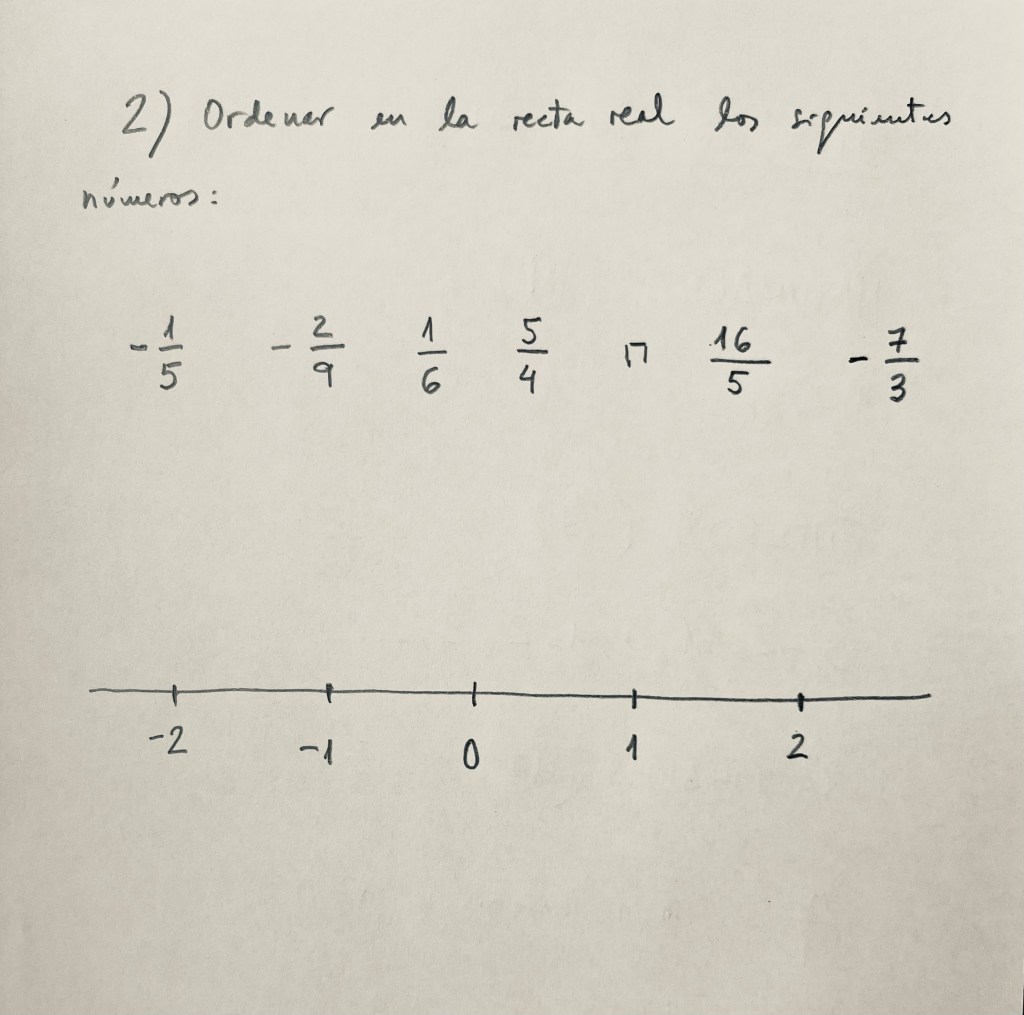 2) Ordenar en la recta real los siguientes
números:
-1/5 -2/9 1/6 5/4 π 16/5 -7/3
-2 -1 0 1 2